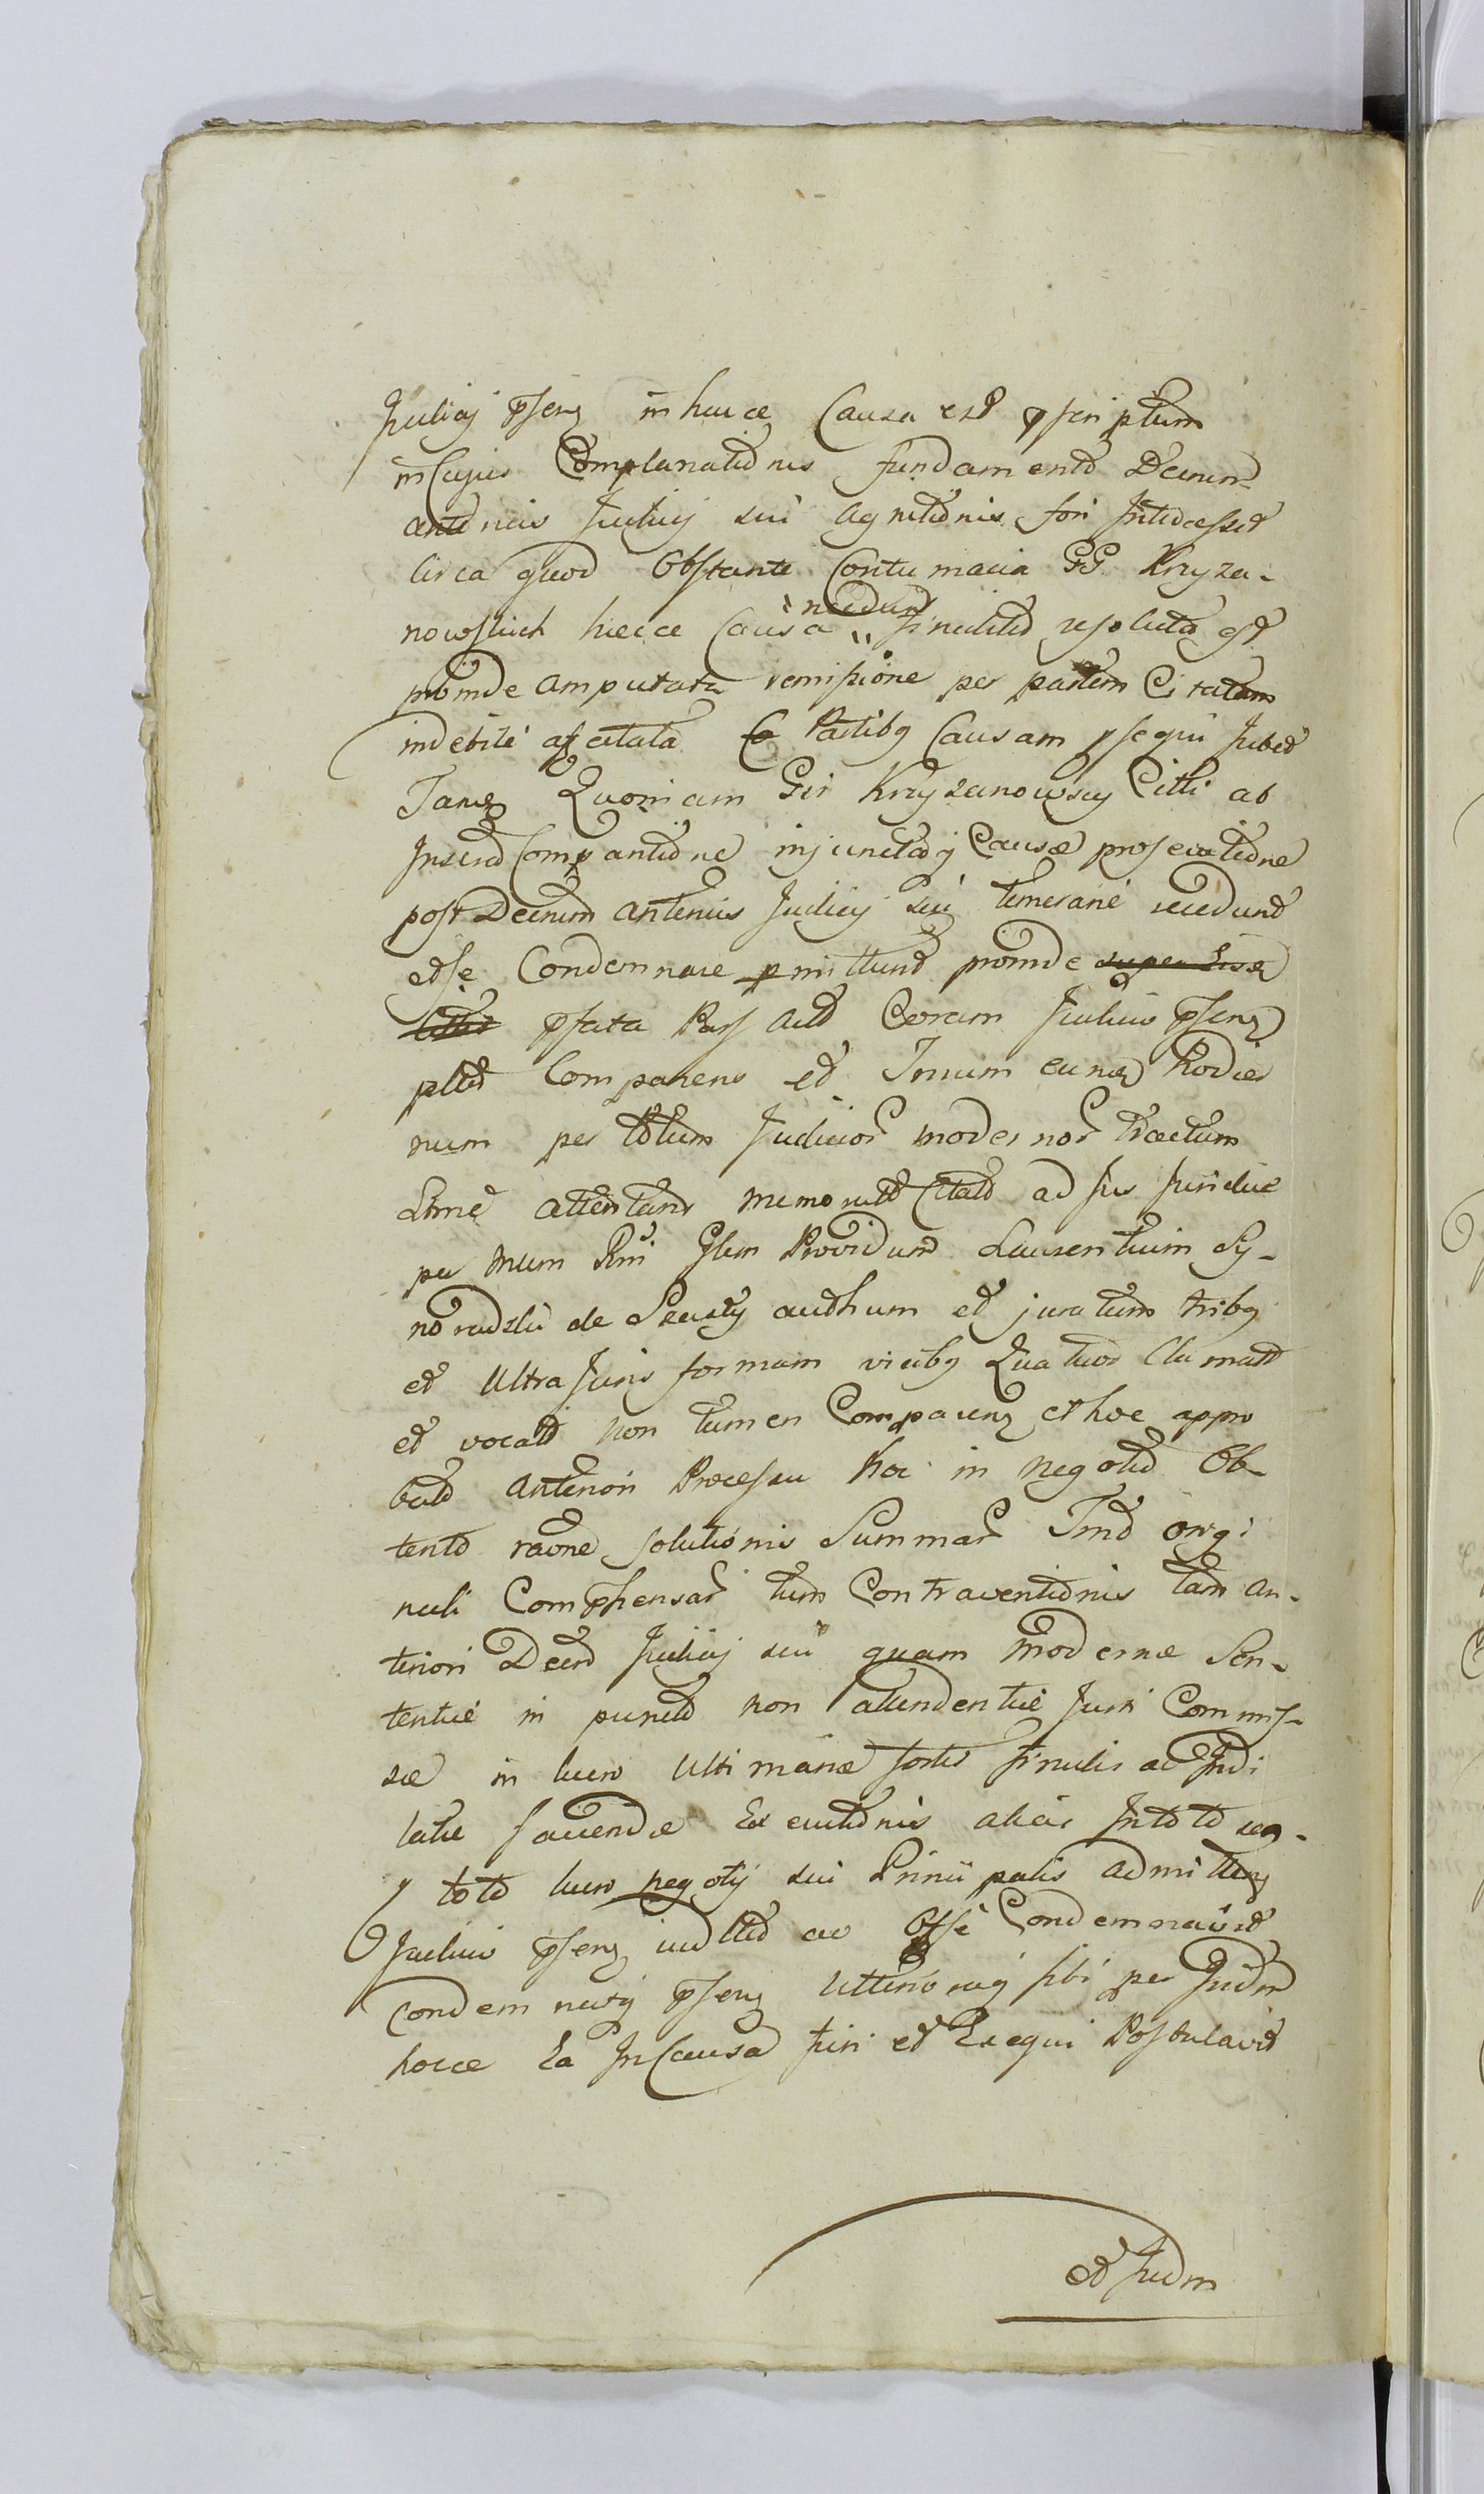 Judicij pſenꝫ in hacce Causa est pſcriptum
in Cujus Complanationis fundamento Decretum
anterius Judicij sui agnitionis fori Interceſsit
Circa quod Obſtante Contumacia GG Krzyza-
nowſkich hiecce Causa necdum finalita reſoluta eſt
proinde amputata remiſsione per partem Citatam
indebite affectata Partibꝫ Causam pſequi Jubet
Tameꝫ Quoniam Gſi Krzyzanowscy Citti ab
Inſend Comparitione injunctaqꝫ Causæ proſecutione
poſt Decretum anterius Judicij sui temerarie recedunt
et ſe Condemnare pmittunt proinde super Lisꝫ
pfata Parſ Act Coram Judicio pſenꝫ
pltr Comparens et Trnum eumꝫ hodier
num per totum Judicior modernor tractum
Ltime attentans memorat Citatos ad Jus Juridice
per mnm Rni Glem Providum Laurentium Sy-
noradzki de auth um et juratum tribꝫ
et Ultra Juris formam vicibꝫ Quatuor Clamatos
et vocatos non tamen Comparenꝫ et hoc appro
bato anteriori Proceſsu hoc in negotio Ob-
tento raone ſolutionis Summar Tmo origi
nali Comphensar tum Contraventionis tam an-
teriori Decreto Judicij sui quam modernæ Sen-
tentiæ in puncto non attendentiæ Juri Commiſ-
sæ in lucro Ultimariæ ſortis finalis ac Indi
latæ faciendæ Executionis alias In toto seu
p toto lucro negotij sui Principalis admittenꝫ
Judicio pſenꝫ indltd ac Oſſe Condemnavit
Condemnatiꝫ pſenꝫ Ulterioraqꝫ ſibi per Judm
hocce Ea In Causa fieri et Exequi Poſtulavit
et Judm